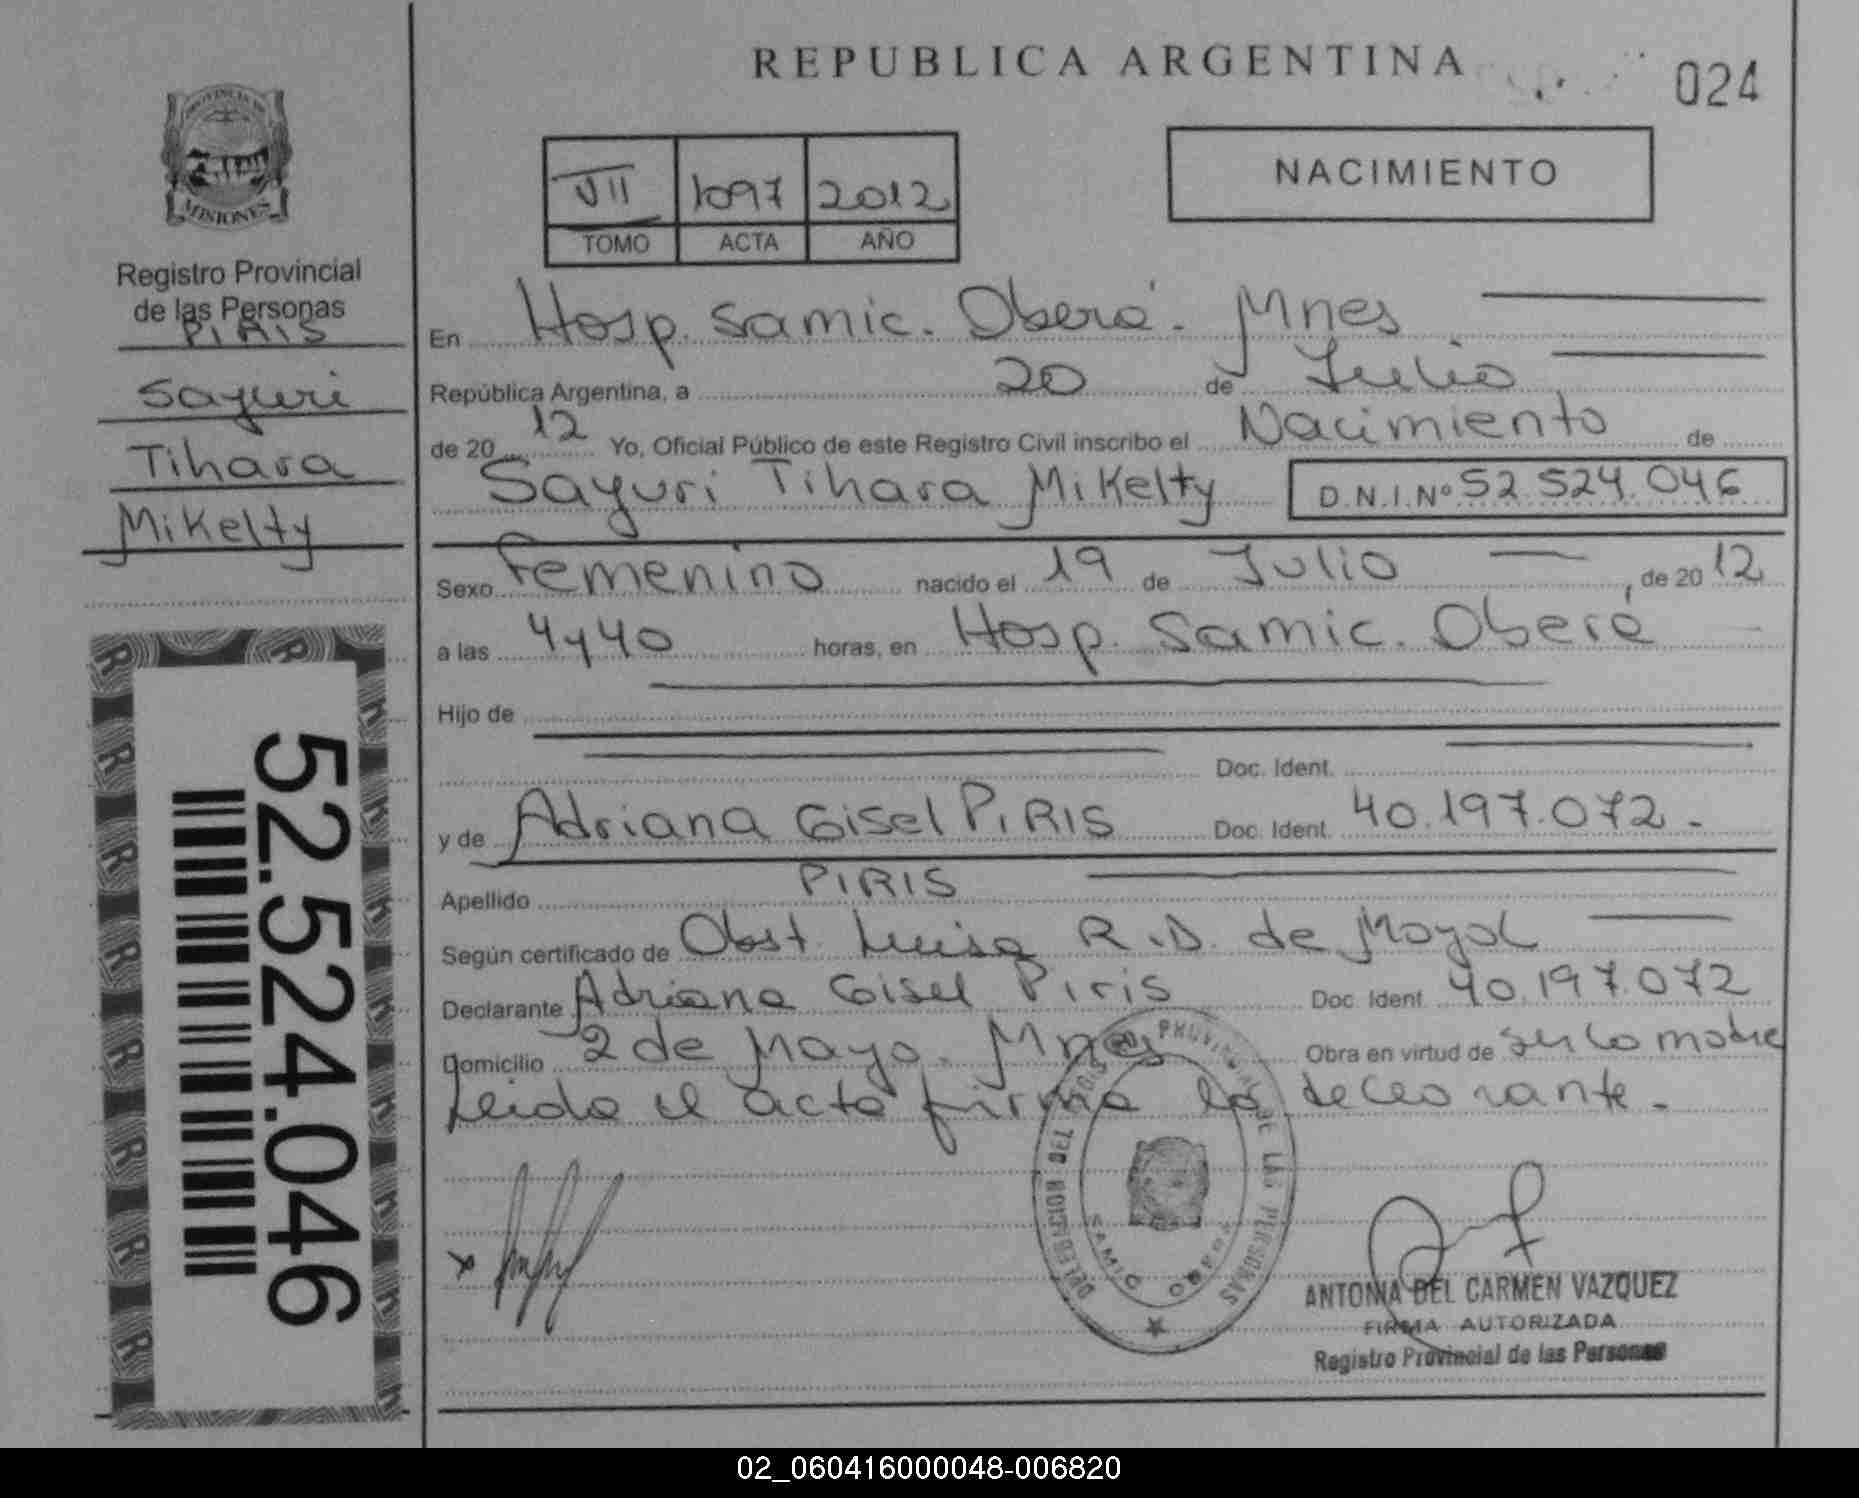 REPUBLICA ARGENTINA
024
PROVINCIA DE
MISIONES
Registro Provincial
de las Personas
PIRIS
Sayuri
Tihara
Mikelty
52.524.046
VII 1097 2012
TOMO ACTA AÑO
NACIMIENTO
En Hosp. Samic. Oberá. Mnes
República Argentina, a 20 de Julio
de 2012 Yo, Oficial Público de este Registro Civil inscribo el Nacimiento de
Sayuri Tihara Mikelty D.N.I.Nº 52.524.046
Sexo Femenino nacido el 19 de Julio, de 2012
a las 4y40 horas, en Hosp. Samic. Oberá
Hijo de
Doc. Ident.
y de Adriana Gisel PIRIS Doc. Ident. 40.197.072.
Apellido PIRIS
Según certificado de Obst. Luisa R.D. de Moyol
Declarante Adriana Gisel Piris Doc. Ident 40.197.072
Domicilio 2 de Mayo. Mnes Obra en virtud de ser la madre
Leida el acta firma la declarante.
DELEGACION DEL REGISTRO PROVINCIAL DE LAS PERSONAS
SAMIC
ANTONIA DEL CARMEN VAZQUEZ
FIRMA AUTORIZADA
Registro Provincial de las Personas
02_060416000048-006820